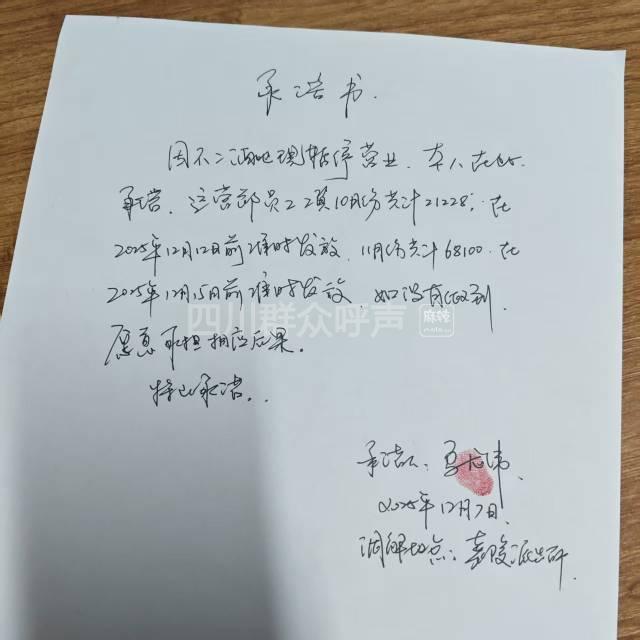 承诺书.
因不二酒吧现暂停营业. 本人在此.
承诺. 运营部员工工资10月份共计21228; 在
2025年12月12日前准时发放. 11月份共计68100. 在
2025年12月15日前准时发放. 如没有收到.
愿意承担相应后果.
特此承诺..
承诺人:
2025年12月7日.
调解地点: 派出所.
四川群众呼声
麻辣